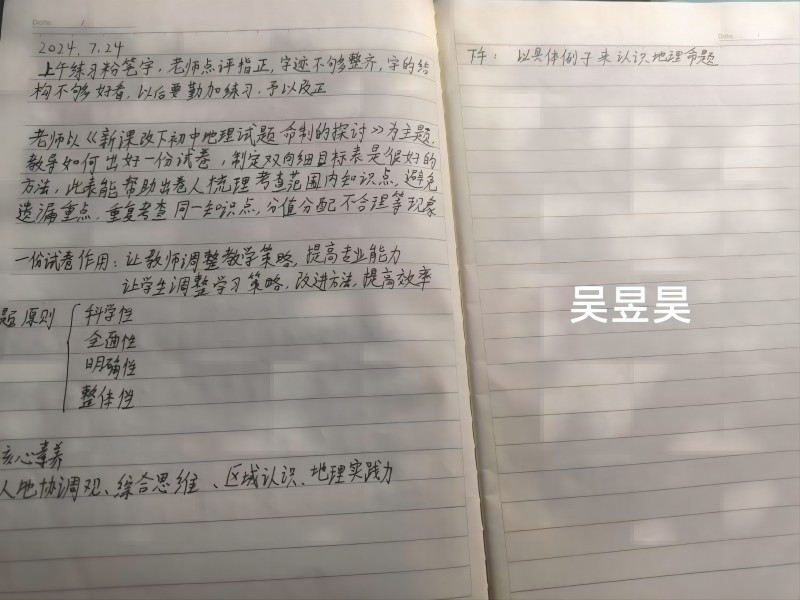 Date. /
2024.7.24
上午练习粉笔字，老师点评指正，字迹不够整齐，字的结
构不够好看，以后要勤加练习，予以改正
老师以《新课改下初中地理试题命制的探讨》为主题，
教导如何出好一份试卷，制定双向细目标表是很好的
方法，此表能帮助出卷人梳理考查范围内知识点，避免
遗漏重点，重复考查同一知识点，分值分配不合理等现象
一份试卷作用：让教师调整教学策略，提高专业能力
让学生调整学习策略，改进方法，提高效率
题原则
科学性
全面性
明确性
整体性
核心素养
人地协调观、综合思维、区域认识、地理实践力
Date. /
下午：以具体例子来认识地理命题
吴昱昊